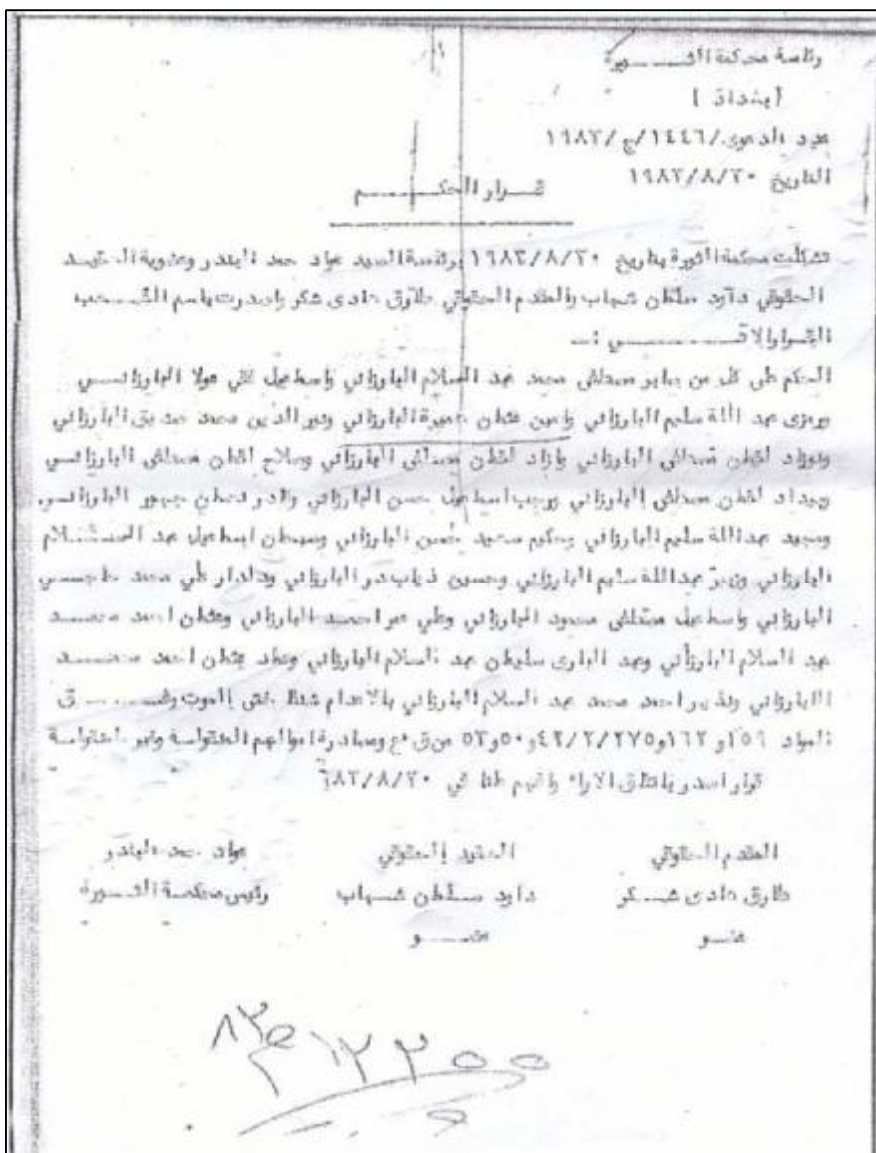 رئاسة محكمة الثـــورة
(بغداد)
عدد الدعوى/١٤٤٦/ج/١٩٨٣
التاريخ ١٩٨٣/٨/٢٠
قـــرار الحكـــم
تشكلت محكمة الثورة بتاريخ ١٩٨٣/٨/٢٠ برئاسة السيد عواد حمد البندر وعضوية العقيد
الحقوقي داود سلمان شهاب والمقدم الحقوقي طارق هادى شكر واصدرت باسم الشـعب
القرار الاتـــي :ـ
الحكم على كل من صابر مصطفى محمد عبد السلام البارزاني واسماعيل مولا البارزانـي
ورمزى عبد الله سليم البارزاني وامين عثمان البارزاني ونور الدين محمد صديق البارزاني
ونوزاد لقمان مصطفى البارزاني وازاد لقمان مصطفى البارزاني وصلاح لقمان مصطفى البارزانـي
لقمان مصطفى البارزاني ورجب اسماعيل حسن البارزاني البارزانـي
ومجيد عبدالله سليم البارزاني وحكيم سعيد البارزاني وسليمان اسماعيل عبد الســلام
البارزاني عبدالله سليم البارزاني وحسين البارزاني ودلدار علي محمد
البارزاني واسماعيل مصطفى محمود البارزاني وعلي عمر احمد البارزاني وعثمان احمد محمـد
عبد السلام البارزاني وعبد البارى سليمان عبد السلام البارزاني وعماد عثمان احمد محمـد
البارزاني ونذير احمد محمد عبد السلام البارزاني بالاعدام شنقا حتى الموت وفـــق
المواد ١٥٦ و ١٦٢ و ٤٩/٢/١٧٥ و ٥٠ و ٥٣ من ق ع ومصادرة اموالهم المنقولـة وغير المنقولـة
قرار اصدر باتفاق الاراء وافهم علنا في ٦٨٣/٨/٢٠
المقدم الحقوقي
العقيد الحقوقي
عواد حمد البندر
طارق هادى شـكر
داود سـلمان شـهاب
رئيس محكمـة الثـورة
عضـو
عضـو